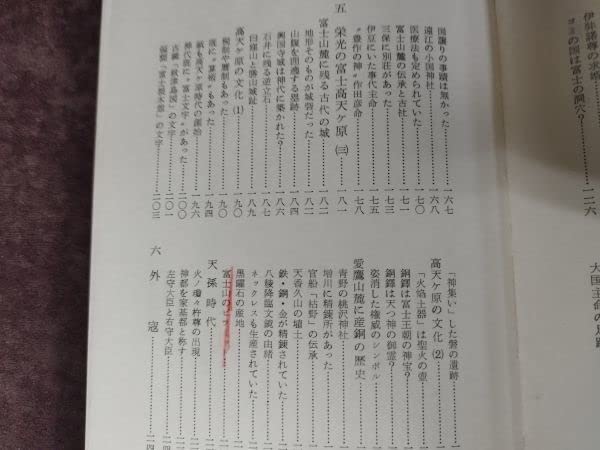 大国主命の足跡
伊弉諾尊の求婚
ヨミの国は富士の洞穴?……一二六
国譲りの事蹟は無かった……一六七
遠江の小国神社……一六八
医療法も定められていた……一七〇
富士山麓の伝承と古社……一七一
三保に別荘があった……一七三
伊豆にいた事代主命……一七五
"豊作の神"作田彦命……一七八
五 栄光の富士高天ケ原(三)……一八一
富士山麓に残る古代の城……一八二
地形そのものが城砦だった……一八二
山腹を囲遶する塁跡……一八四
興国寺城は神代に築かれた?……一八六
石井に残る逆立石……一八七
白窪山と勝間城趾……一八九
高天ケ原の文化(1)……一九〇
税制や暦制もあった……一九〇
既に"算術"もあった……一九四
紙も高天ケ原時代の源始……一九六
神代既に"富士文字"があった……二〇〇
古織「秋津島図」の文字……二〇〇
偏額「富士美木能」の文字……二〇三
「神集い」した磐の遺跡
高天ケ原の文化(2)
「火焰土器」は聖火の壺
銅鐸は富士王朝の神宝?
銅鐸は天つ神の御霊?
姿消した権威のシンボル
愛鷹山麓に産銅の歴史
青野の桃沢神社
増川に精錬所があった
官船「枯野」の伝承
天香久山の埴土
鉄・銅・金が精錬されていた
八稜降臨文鏡の由緒
ネックレスも生産されていた
黒曜石の産地
富士山のピ
天孫時代
火ノ瓊々杵尊の出現
神都を家基都と称す
左守大臣と右守大臣
六 外寇